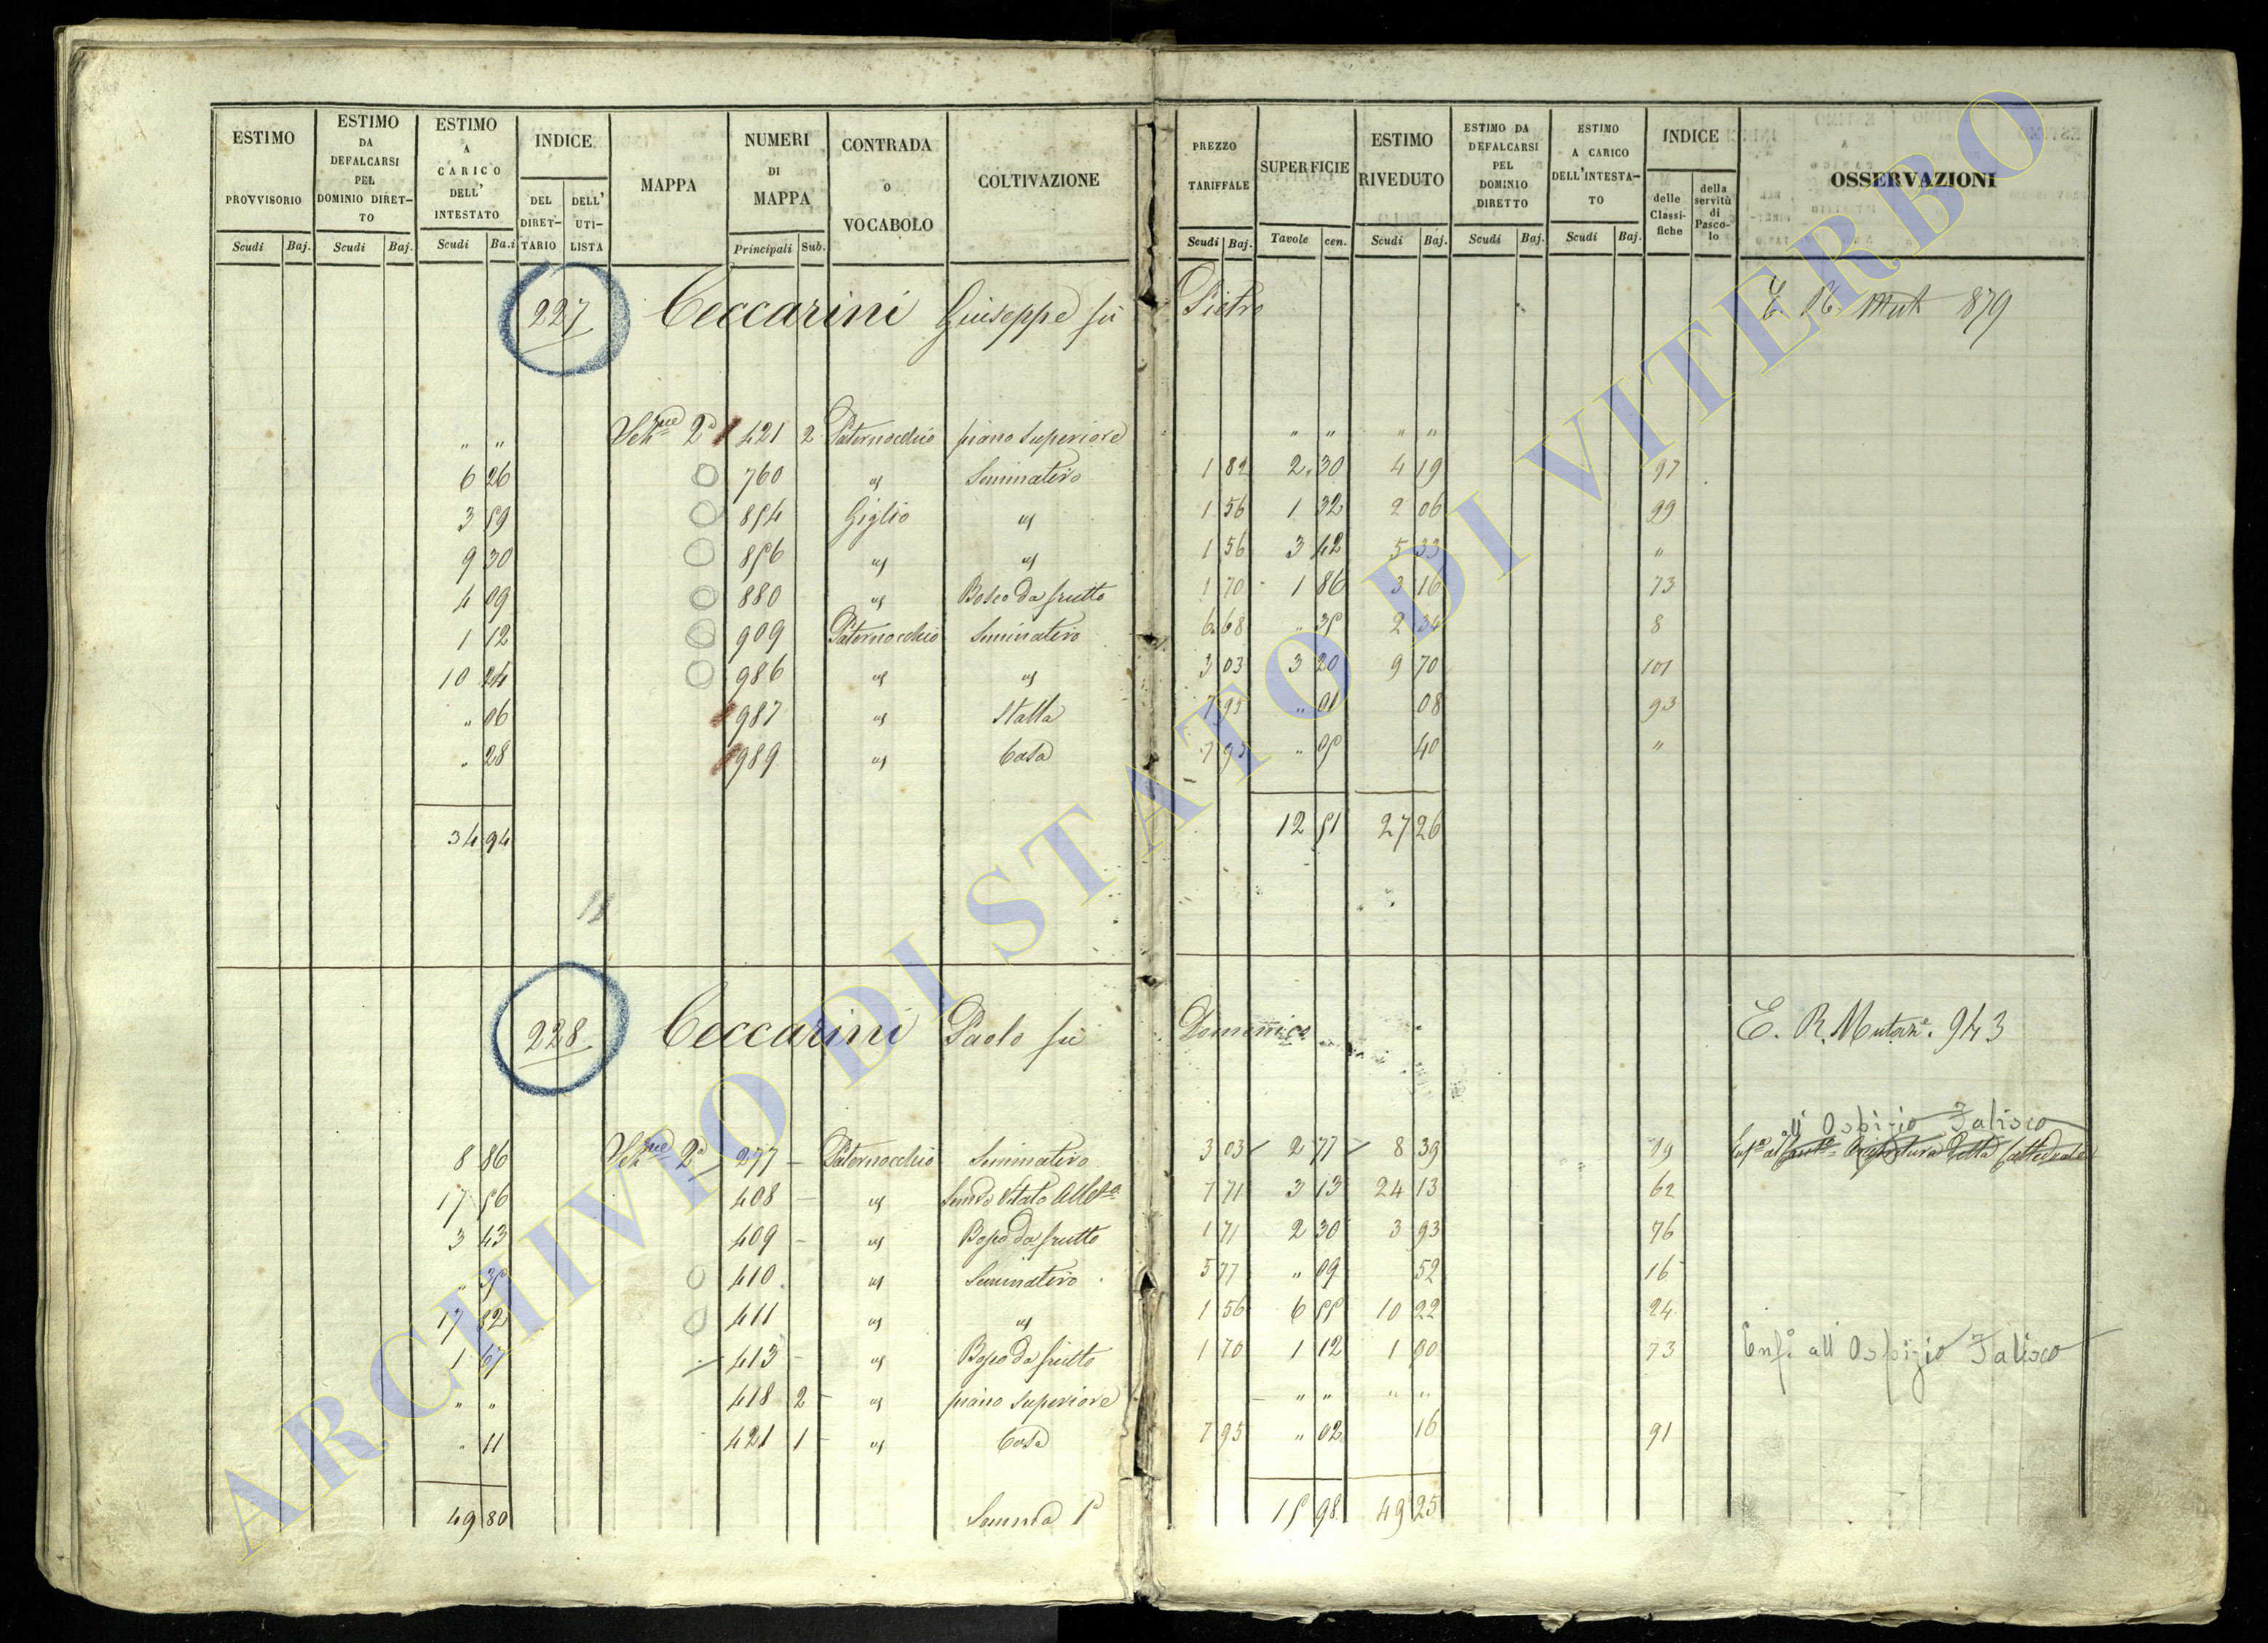 ESTIMO PROVVISORIO | ESTIMO DA DEFALCARSI PEL DOMINIO DIRETTO | ESTIMO A CARICO DELL' INTESTATO | INDICE | MAPPA | NUMERI DI MAPPA | CONTRADA O VOCABOLO | COLTIVAZIONE | PREZZO TARIFFALE | SUPERFICIE | ESTIMO RIVEDUTO | ESTIMO DA DEFALCARSI PEL DOMINIO DIRETTO | ESTIMO A CARICO DELL'INTESTATO | INDICE | OSSERVAZIONI
Scudi Baj. | Scudi Baj. | Scudi Ba.i | DEL DIRETTARIO | DELL' UTILISTA | Principali Sub. | Scudi Baj. | Tavole cen. | Scudi Baj. | Scudi Baj. | Scudi Baj. | delle Classifiche | della servitù di Pascolo
227 Ceccarini Giuseppe fù Pietro Mut 879
" " 2a 421 2 Paternocchio piano superiore " " " "
6 26 760 " Seminativo 1 82 2 30 4 19 97
3 59 854 Giglio " 1 56 1 32 2 06 99
9 30 856 " " 1 56 3 42 5 33 "
4 09 880 " Bosco da frutto 1 70 1 86 3 16 73
1 12 909 Paternocchio Seminativo 6 68 " 35 2 34 8
10 24 986 " " 3 03 3 20 9 70 101
" 06 987 " Stalla 7 95 " 01 08 93
" 28 989 " Casa 7 95 " 05 40 "
34 94 12 51 27 26
228 Ceccarini Paolo fù Domenico E. R. Mutazne. 943
all Ospizio Falisco
8 86 2a 277 Paternocchio Seminativo 3 03 2 77 8 39 19
17 56 408 " 7 71 3 13 24 13 62
3 43 409 " Bosco da frutto 1 71 2 30 3 93 76
" 35 410 " Seminativo 5 77 " 09 52 16
17 82 411 " " 1 56 6 55 10 22 24
1 67 413 " Bosco da frutto 1 70 1 12 1 90 73 Enfi. all Ospizio Falisco
" " 418 2 " piano superiore " " " "
" 11 421 1 " Casa 7 95 " 02 16 91
49 80 Somma 15 98 49 25
ARCHIVIO DI STATO DI VITERBO